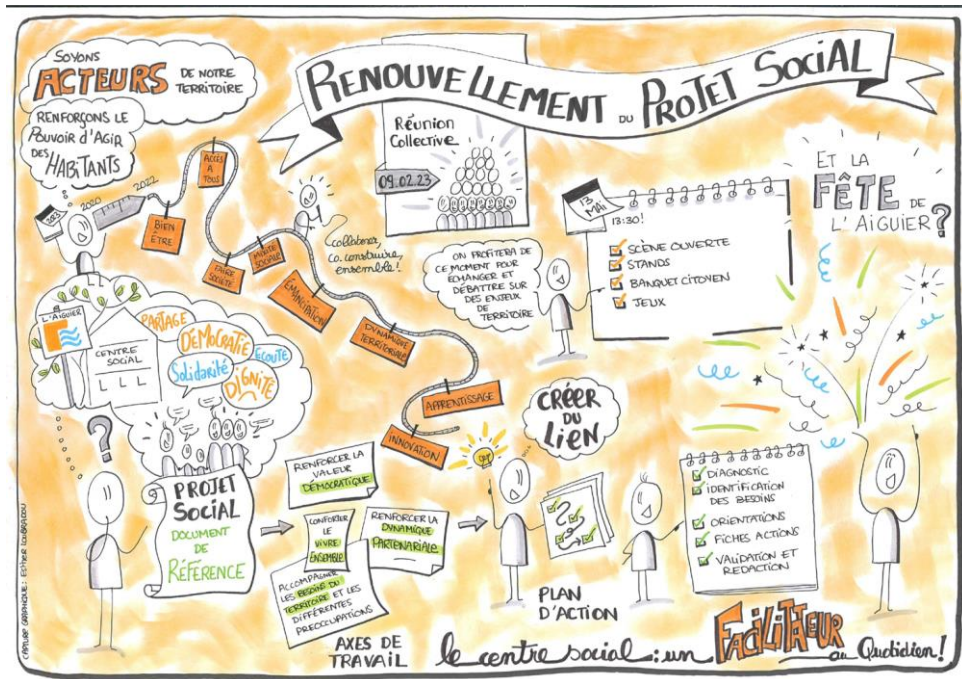 SOYONS
ACTEURS DE NOTRE
TERRITOIRE
RENFORÇONS LE
Pouvoir d'Agir
DES HABITANTS
RENOUVELLEMENT DU PROJET SOCIAL
Réunion
Collective
09.02.23
2020
2022
ACCÈS
À
TOUS
BIEN
ÊTRE
FAIRE
SOCIÉTÉ
MIXITÉ
SOCIALE
ÉMANCIPATION
DYNAMIQUE
TERRITORIALE
APPRENTISSAGE
INNOVATION
collaborer,
co.construire,
ensemble!
ON PROFITERA DE
CE MOMENT POUR
ÉCHANGER ET
DÉBATTRE SUR
DES ENJEUX
DE
TERRITOIRE
13
MAI
13:30!
SCÈNE OUVERTE
STANDS
BANQUET CITOYEN
JEUX
ET LA
FÊTE DE
L'AIGUIER?
L'AIGUIER
CENTRE
SOCIAL
PARTAGE
DÉMOCRATIE
ÉCOUTE
Solidarité
DIGNITÉ
?
PROJET
SOCIAL
DOCUMENT
DE
RÉFÉRENCE
RENFORCER LA
VALEUR
DÉMOCRATIQUE
CONFORTER
LE
VIVRE
ENSEMBLE
RENFORCER LA
DYNAMIQUE
PARTENARIALE
ACCOMPAGNER
LES BESOINS DU
TERRITOIRE ET LES
DIFFÉRENTES
PREOCCUPATIONS
AXES DE
TRAVAIL
CRÉER
DU
LIEN
PLAN
D'ACTION
DIAGNOSTIC
IDENTIFICATION
DES BESOINS
ORIENTATIONS
FICHES ACTIONS
VALIDATION ET
REDACTION
le centre social : un FACILITATEUR au Quotidien!
CAPTURE GRAPHIQUE : ESTHER LOUBRADOU